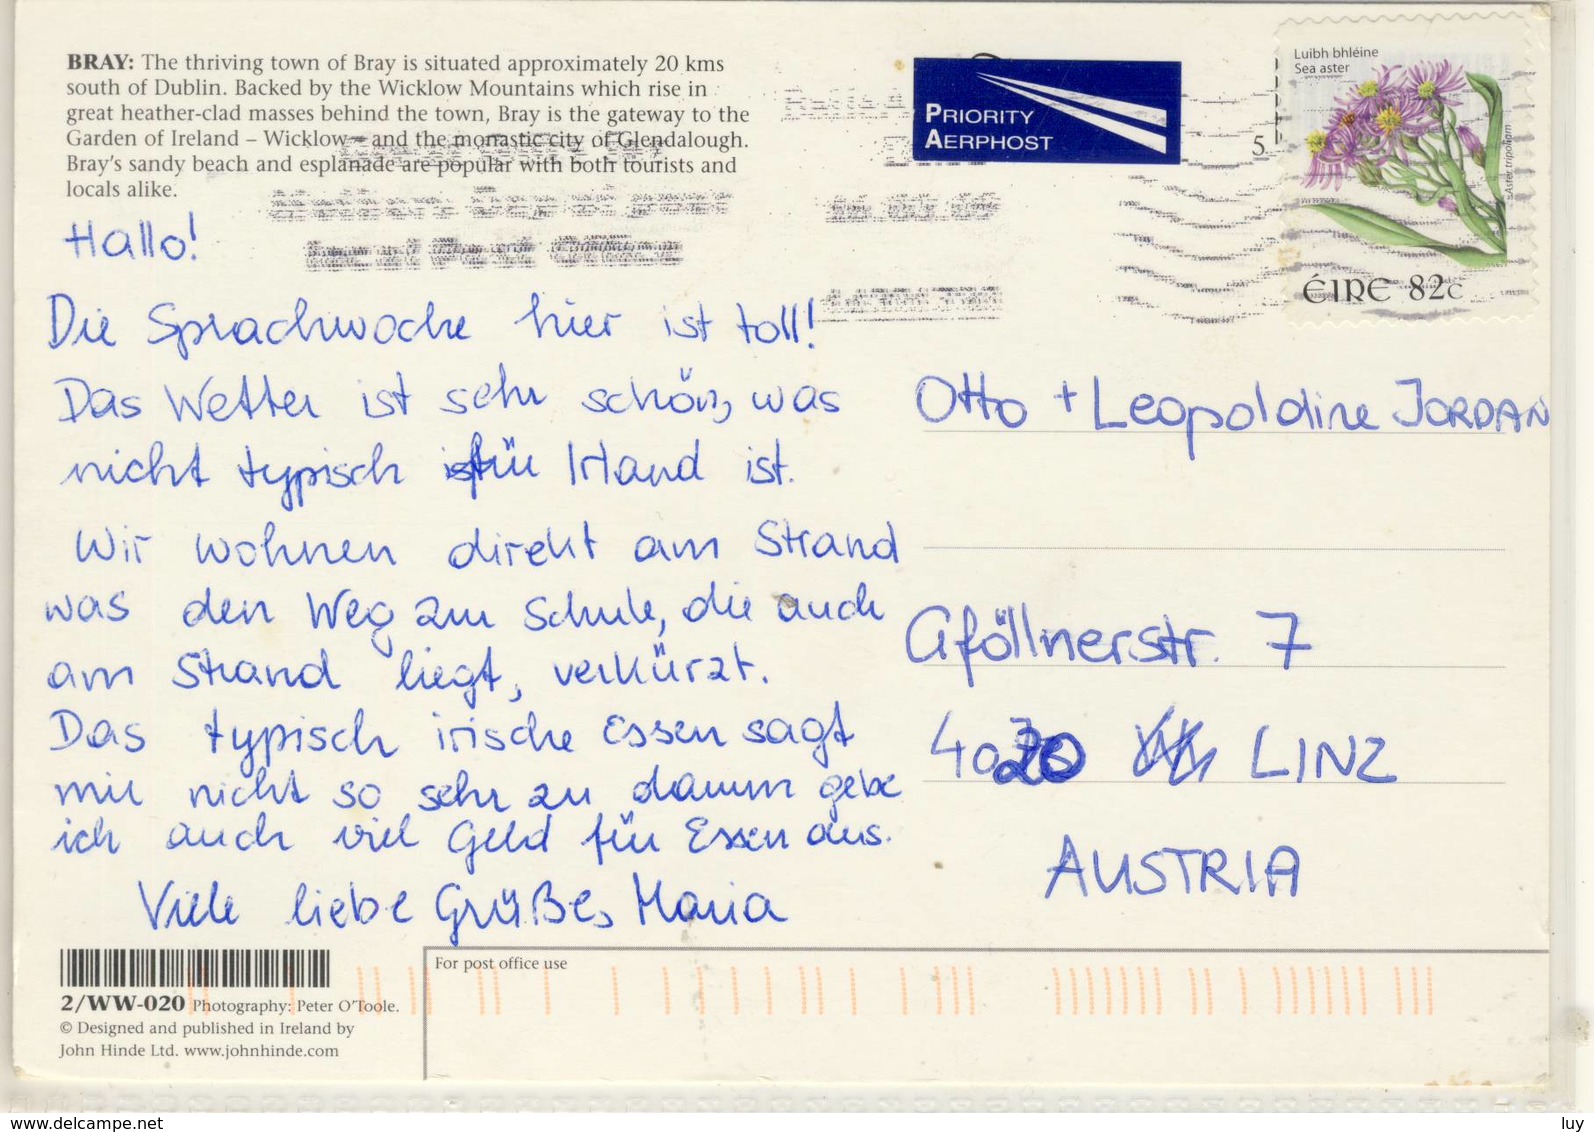 BRAY: The thriving town of Bray is situated approximately 20 kms
south of Dublin. Backed by the Wicklow Mountains which rise in
great heather-clad masses behind the town, Bray is the gateway to the
Garden of Ireland – Wicklow – and the monastic city of Glendalough.
Bray's sandy beach and esplanade are popular with both tourists and
locals alike.
PRIORITY
AERPHOST
5.
Luibh bhléine
Sea aster
Aster tripolium
ÉIRE 82c
Hallo!
Die Sprachwoche hier ist toll!
Das Wetter ist sehr schön, was
nicht typisch für Irland ist.
Wir wohnen direkt am Strand
was den Weg zur Schule, die auch
am Strand liegt, verkürzt.
Das typisch irische Essen sagt
mir nicht so sehr zu darum gebe
ich auch viel Geld für Essen aus.
Viele liebe Grüße, Maria
Otto + Leopoldine JORDAN
Gföllnerstr. 7
4020 LINZ
AUSTRIA
For post office use
2/WW-020 Photography: Peter O'Toole.
© Designed and published in Ireland by
John Hinde Ltd. www.johnhinde.com
www.delcampe.net
luy